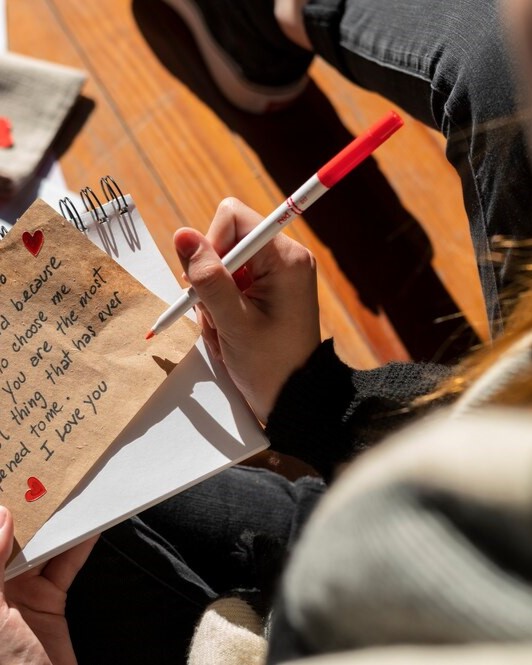 d because
o choose me
you are the most
l thing that has ever
ened to me.
I love you